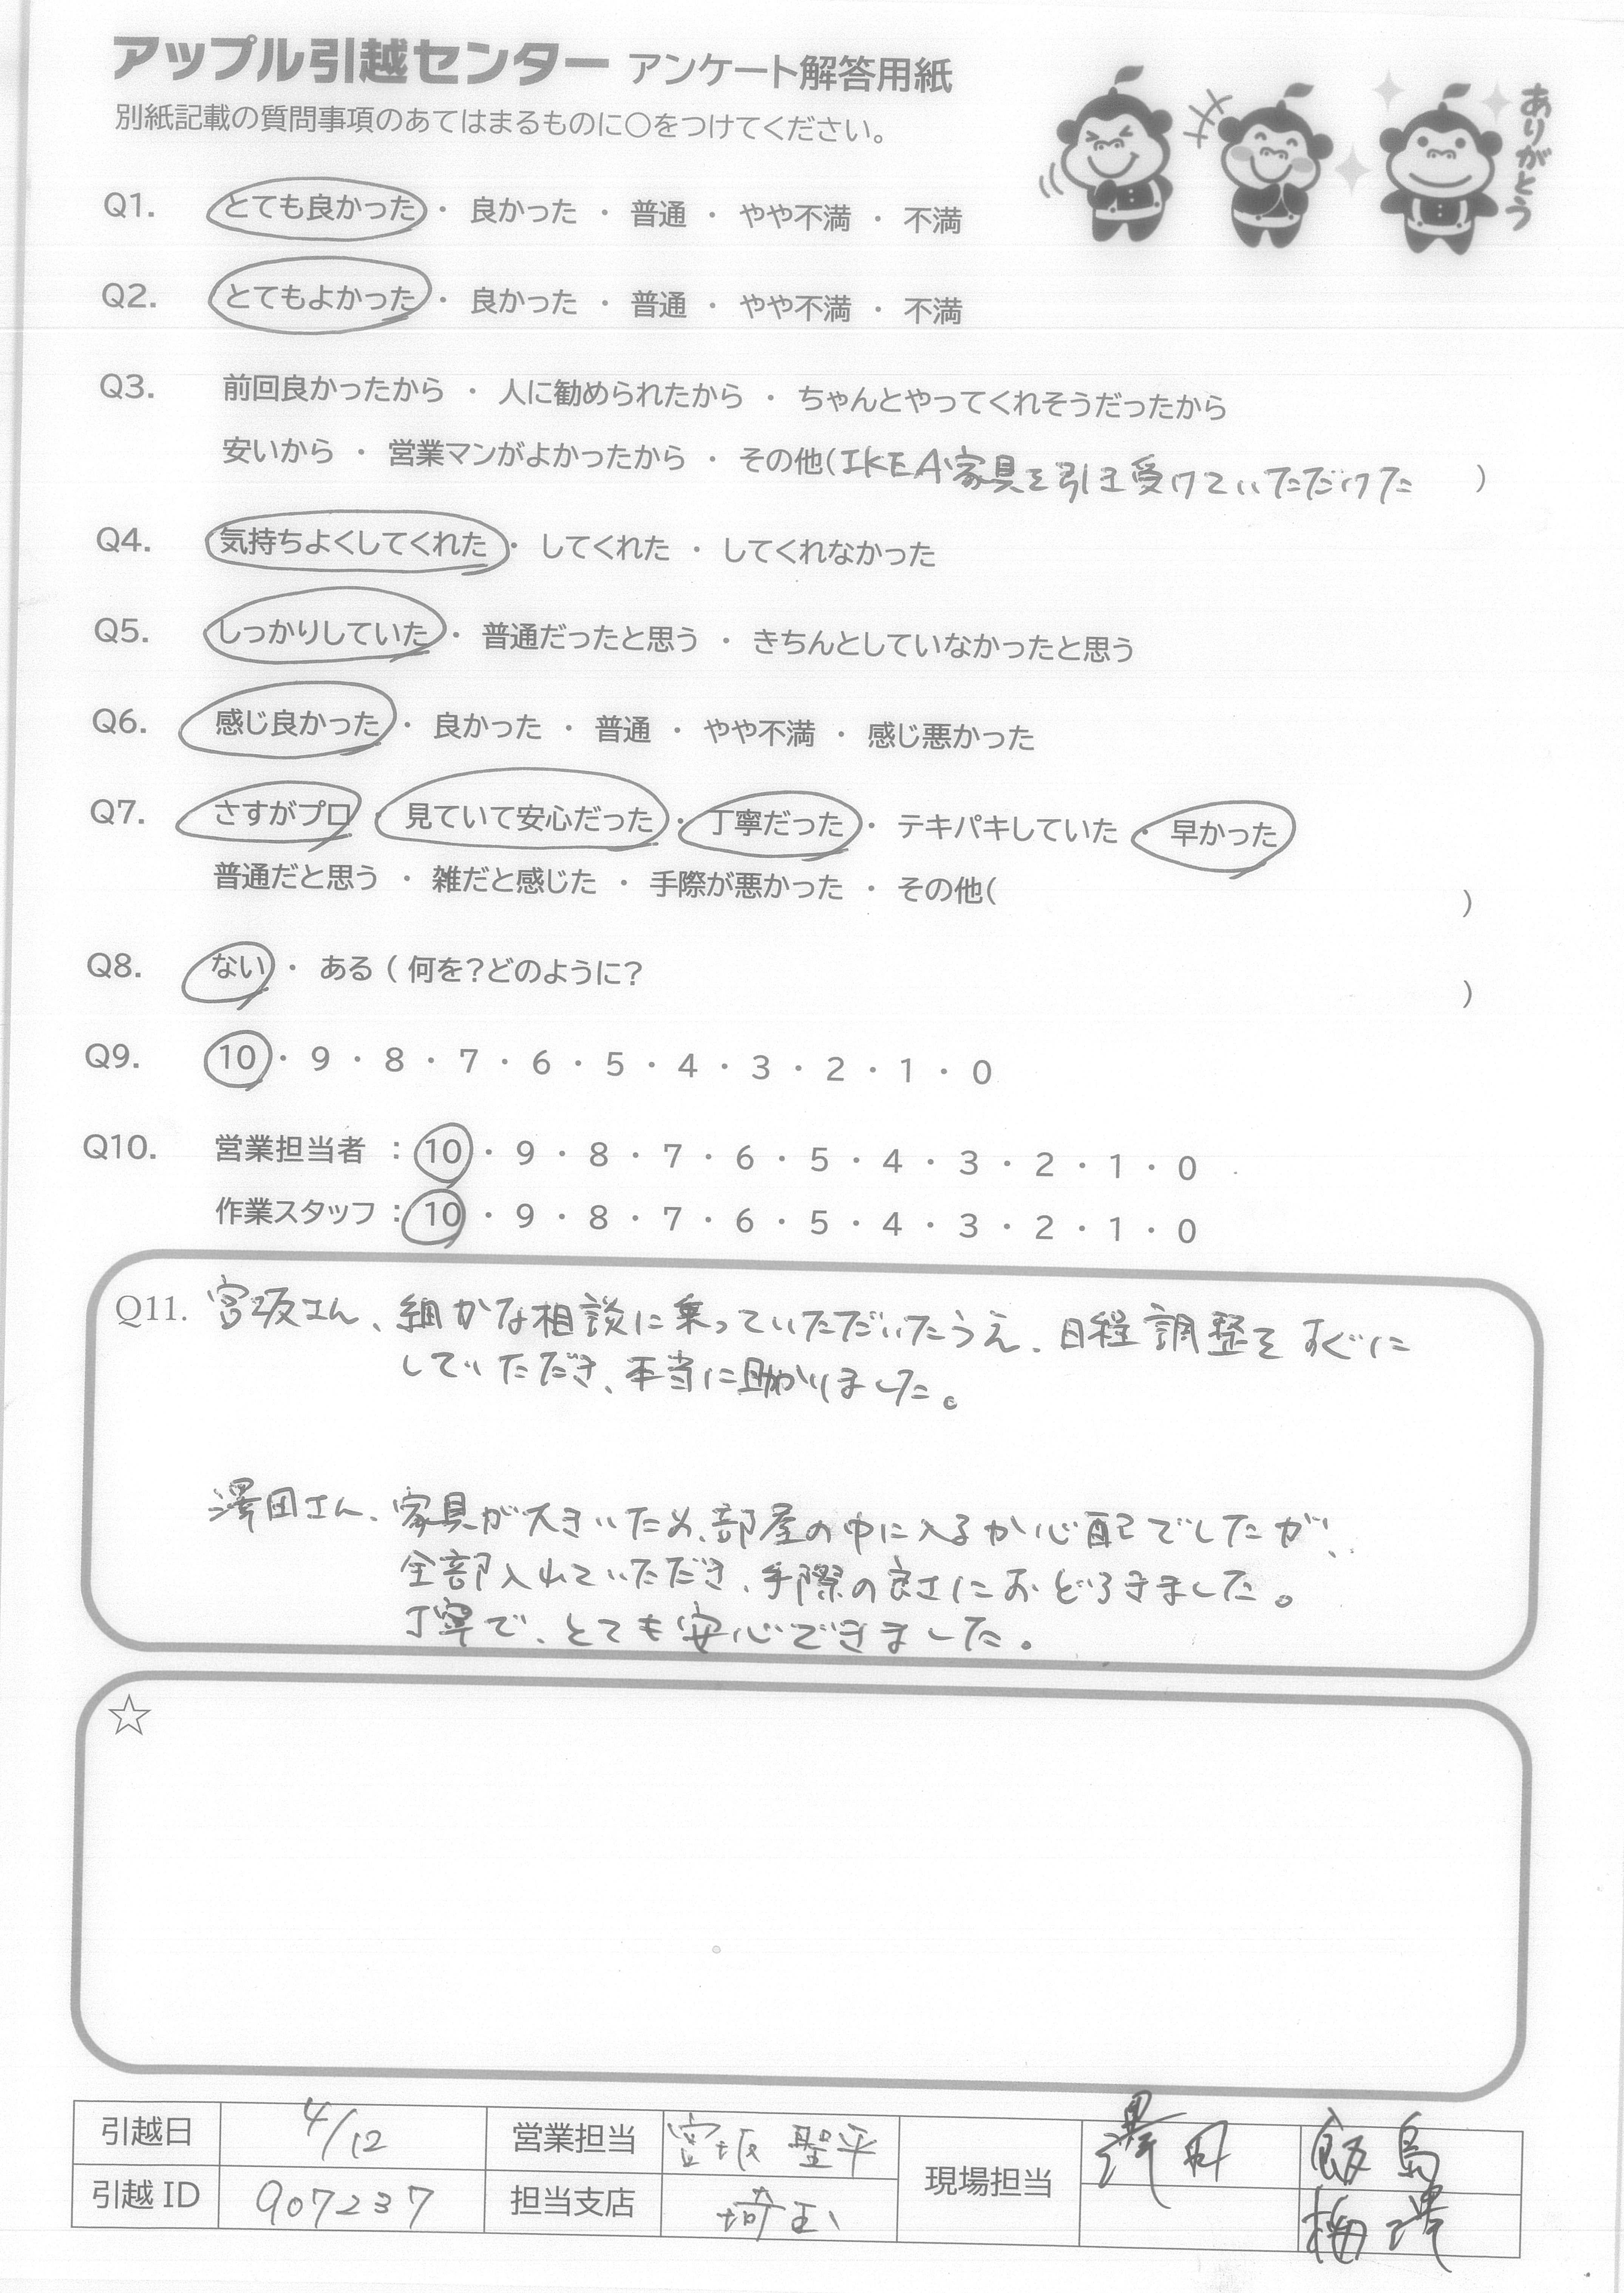 アップル引越センター アンケート解答用紙
別紙記載の質問事項のあてはまるものに○をつけてください。
ありがとう
Q1. とても良かった ・ 良かった ・ 普通 ・ やや不満 ・ 不満
Q2. とてもよかった ・ 良かった ・ 普通 ・ やや不満 ・ 不満
Q3. 前回良かったから ・ 人に勧められたから ・ ちゃんとやってくれそうだったから
安いから ・ 営業マンがよかったから ・ その他(IKEA家具を引き受けていただけた )
Q4. 気持ちよくしてくれた ・ してくれた ・ してくれなかった
Q5. しっかりしていた ・ 普通だったと思う ・ きちんとしていなかったと思う
Q6. 感じ良かった ・ 良かった ・ 普通 ・ やや不満 ・ 感じ悪かった
Q7. さすがプロ ・ 見ていて安心だった ・ 丁寧だった ・ テキパキしていた ・ 早かった
普通だと思う ・ 雑だと感じた ・ 手際が悪かった ・ その他( )
Q8. ない ・ ある ( 何を?どのように? )
Q9. 10 ・ 9 ・ 8 ・ 7 ・ 6 ・ 5 ・ 4 ・ 3 ・ 2 ・ 1 ・ 0
Q10. 営業担当者 : 10 ・ 9 ・ 8 ・ 7 ・ 6 ・ 5 ・ 4 ・ 3 ・ 2 ・ 1 ・ 0
作業スタッフ : 10 ・ 9 ・ 8 ・ 7 ・ 6 ・ 5 ・ 4 ・ 3 ・ 2 ・ 1 ・ 0
Q11. 宮坂さん、細かな相談に乗っていただいたうえ、日程調整をすぐに
していただき、本当に助かりました。
澤田さん、家具が大きいため、部屋の中に入るか心配でしたが、
全部入れていただき、手際の良さにおどろきました。
丁寧で、とても安心できました。
☆
引越日 4/12 営業担当 宮坂 聖平 現場担当 澤田 飯島
引越ID 907237 担当支店 埼玉 梅澤